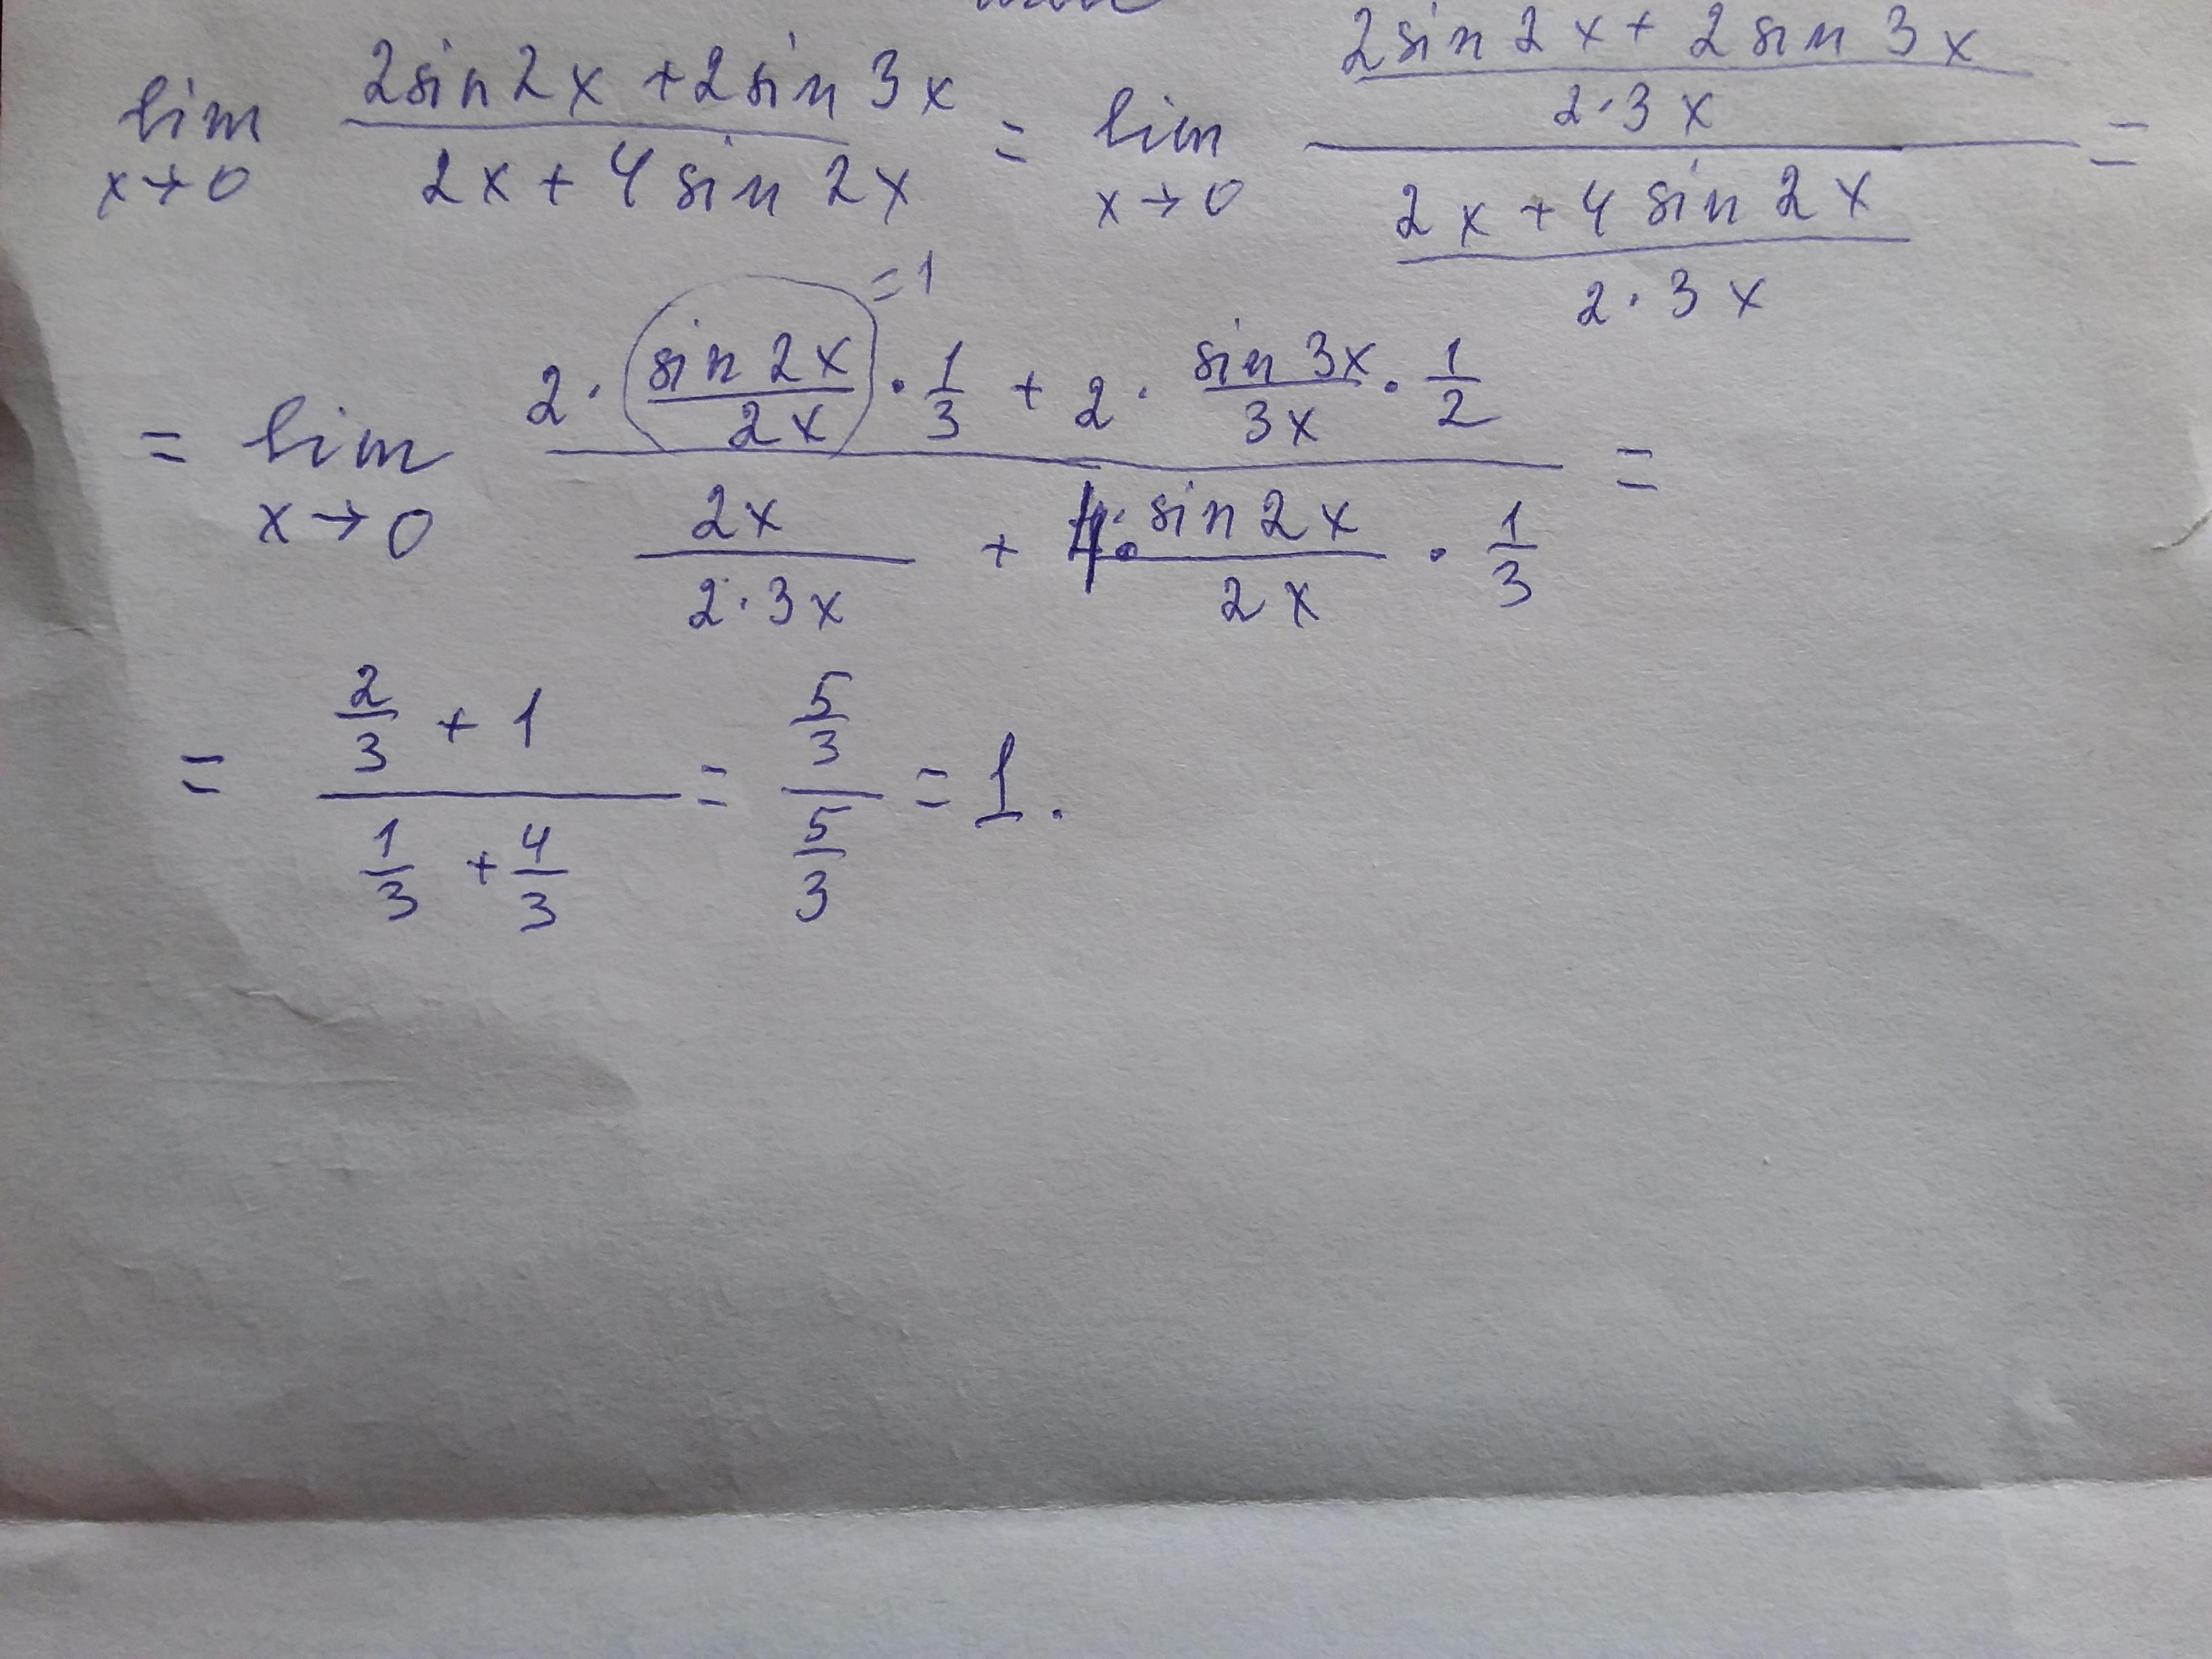 lim x→0 (2sin2x + 2sin3x)/(2x + 4sin2x) = lim x→0 ((2sin2x + 2sin3x)/(2·3x))/((2x + 4sin2x)/(2·3x)) =
= lim x→0 (2·(sin2x/2x)·1/3 + 2·sin3x/3x·1/2)/(2x/(2·3x) + 4·sin2x/2x·1/3) =
=1
= (2/3 + 1)/(1/3 + 4/3) = (5/3)/(5/3) = 1.